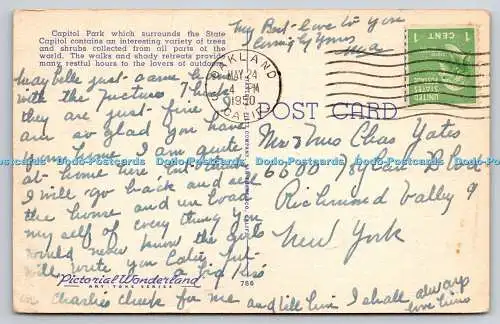 Capitol Park which surrounds the State
Capitol contains an interesting variety of trees
and shrubs collected from all parts of the
world. The walks and shady retreats provide
many restful hours to the lovers of outdoors
My Best love to you
OAKLAND
MAY 24
4 PM
1950
CALIF.
1
CENT
1
UNITED
STATES
POSTAGE
POST CARD
Maybelle just came home
with the pictures I think
they are just fine I
am so glad you have
your home I am quite
at home here but think
I will go back and sell
the home and un load
my self of every thing you
would never know the girls
will write you later but
a big kiss
on Charlies cheek for me and tell him I shall always
love him
Mr & Mrs Chas Yates
6600 78
Richmond Valley 9
New York
Pictorial Wonderland
ART TONE SERIES
786
Dodo-Postcards Dodo-Postcards Dodo-Postcards Dodo-Postcards Dodo-Postcards Dodo-Postcards